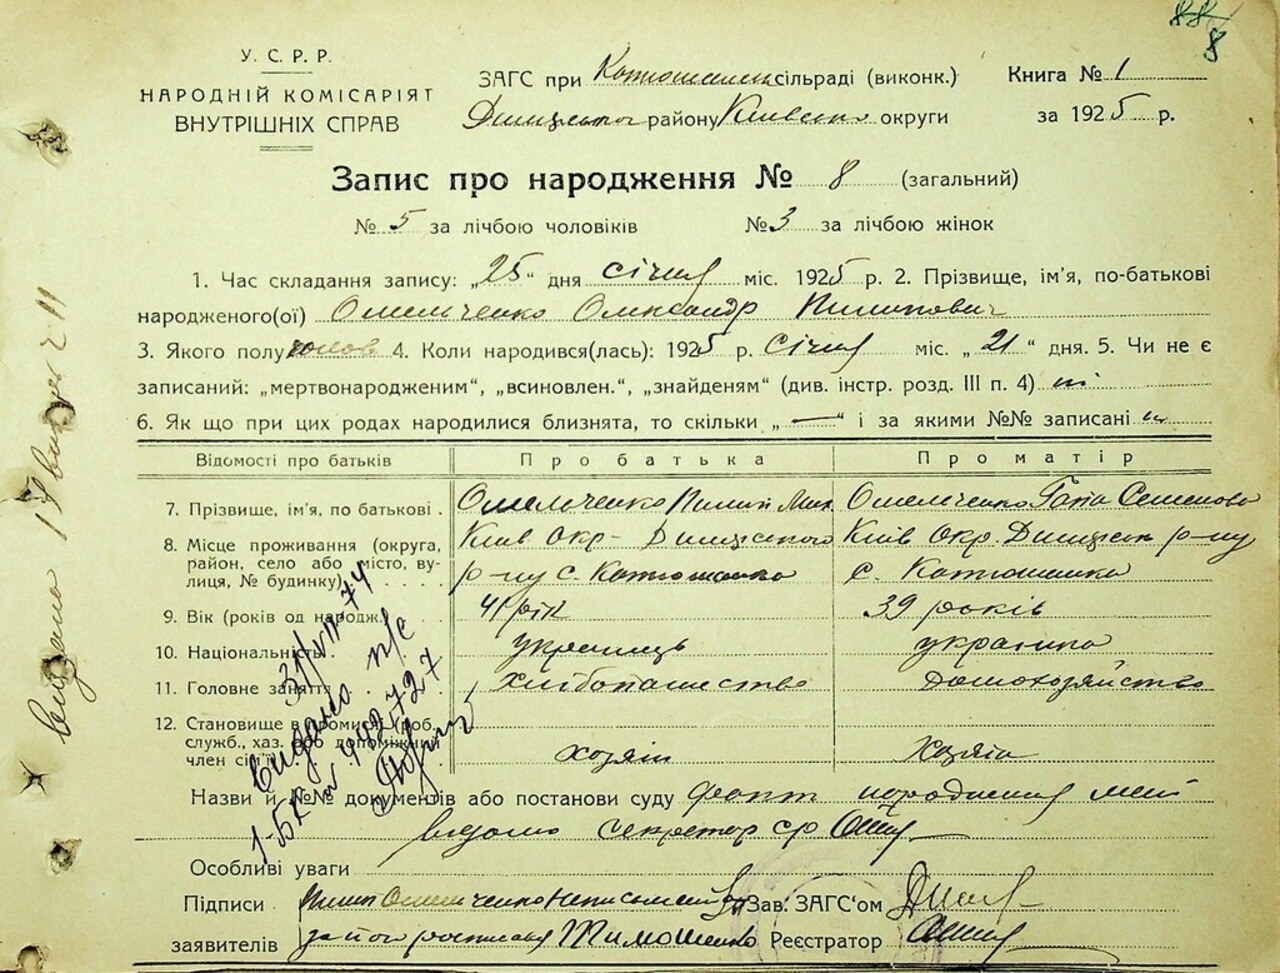 8
У. С. Р. Р.
НАРОДНІЙ КОМІСАРІЯТ
ВНУТРІШНІХ СПРАВ
ЗАГС при сільраді (виконк.) Книга № 1
району Київської округи за 1925 р.
Запис про народження № 8 (загальний)
№ 5 за лічбою чоловіків №3 за лічбою жінок
1. Час складання запису: „25“ дня січня міс. 1925 р. 2. Прізвище, ім'я, по-батькові
народженого(ої) Омельченко Олександр Пилипович
3. Якого полу чолов 4. Коли народився(лась): 1925 р. січня міс. „21“ дня. 5. Чи не є
записаний: „мертвонародженим“, „всиновлен.“, „знайденям“ (див. інстр. розд. III п. 4) ні
6. Як що при цих родах народилися близнята, то скільки „—“ і за якими №№ записані
Відомості про батьків Про батька Про матір
7. Прізвище, ім'я, по батькові . Омельченко Пилип Мих. Омельченко Гапа Семенова
8. Місце проживання (округа, Київ Окр- Димерського Київ Окр. Димерськ р-ну
район, село або місто, ву-
лиця, № будинку) р-ну с. Катюшанка с. Катюшанка
9. Вік (років од народж.) 41 рік 39 років
10. Національність українець українка
11. Головне заняття хлібопашество домохозяйство
12. Становище в промислі (роб.
служб., хаз. або допоміжний
член сім'ї) хозяін хозяйка
Назви й №№ документів або постанови суду факт народження мені
відомо секретар с/р
Особливі уваги
Підписи Пилип Омельченко неписьменний Зав. ЗАГС'ом
заявителів за його росписався Тимошенко Реєстратор
Видано
31/VII-74
видано п/с
1-БК № 442727